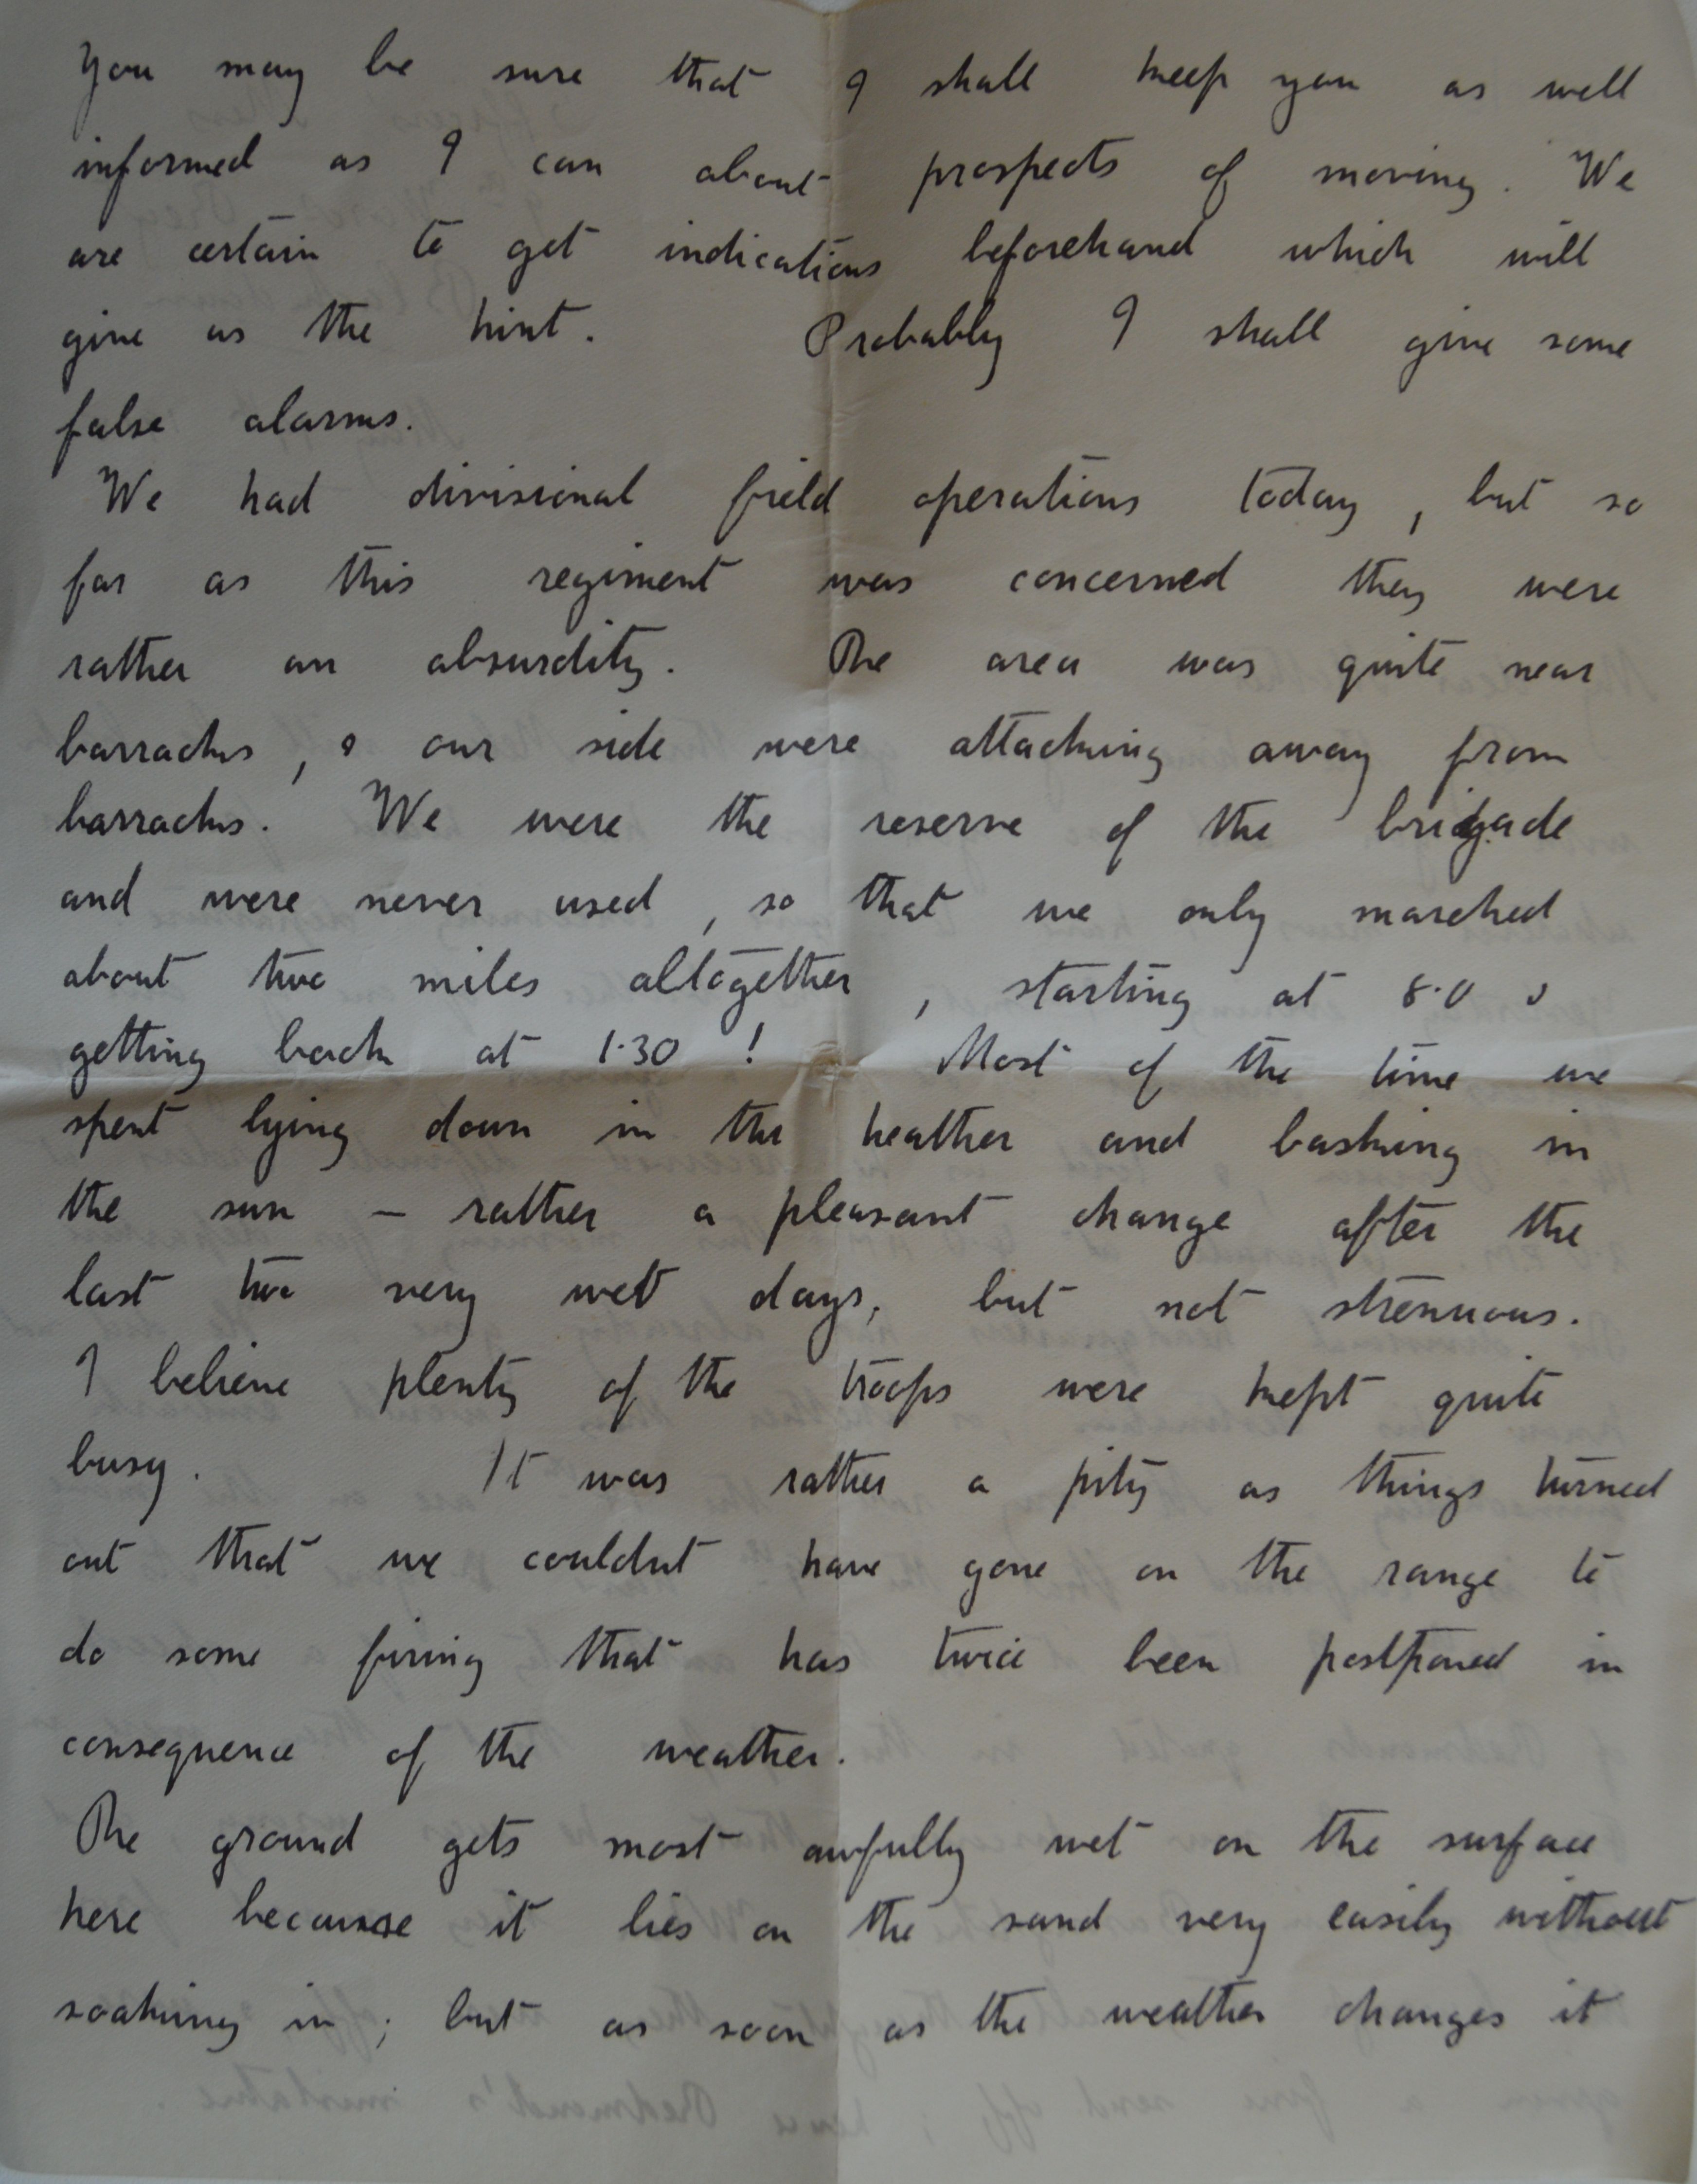 You may be sure that I shall keep you as well
informed as I can about prospects of moving. We
are certain to get indications beforehand which will
give us the hint. Probably I shall give some
false alarms.
We had divisional field operations today, but so
far as this regiment was concerned they were
rather an absurdity. The area was quite near
barracks, & our side were attacking away from
barracks. We were the reserve of the brigade
and were never used, so that we only marched
about two miles altogether, starting at 8.0 &
getting back at 1.30 ! Most of the time we
spent lying down in the heather and basking in
the sun – rather a pleasant change after the
last two very wet days, but not strenuous.
I believe plenty of the troops were kept quite
busy. It was rather a pity as things turned
out that we couldnt have gone on the range to
do some firing that has twice been postponed in
consequence of the weather.
The ground gets most awfully wet on the surface
here because it lies on the sand very easily without
soaking in ; but as soon as the weather changes it